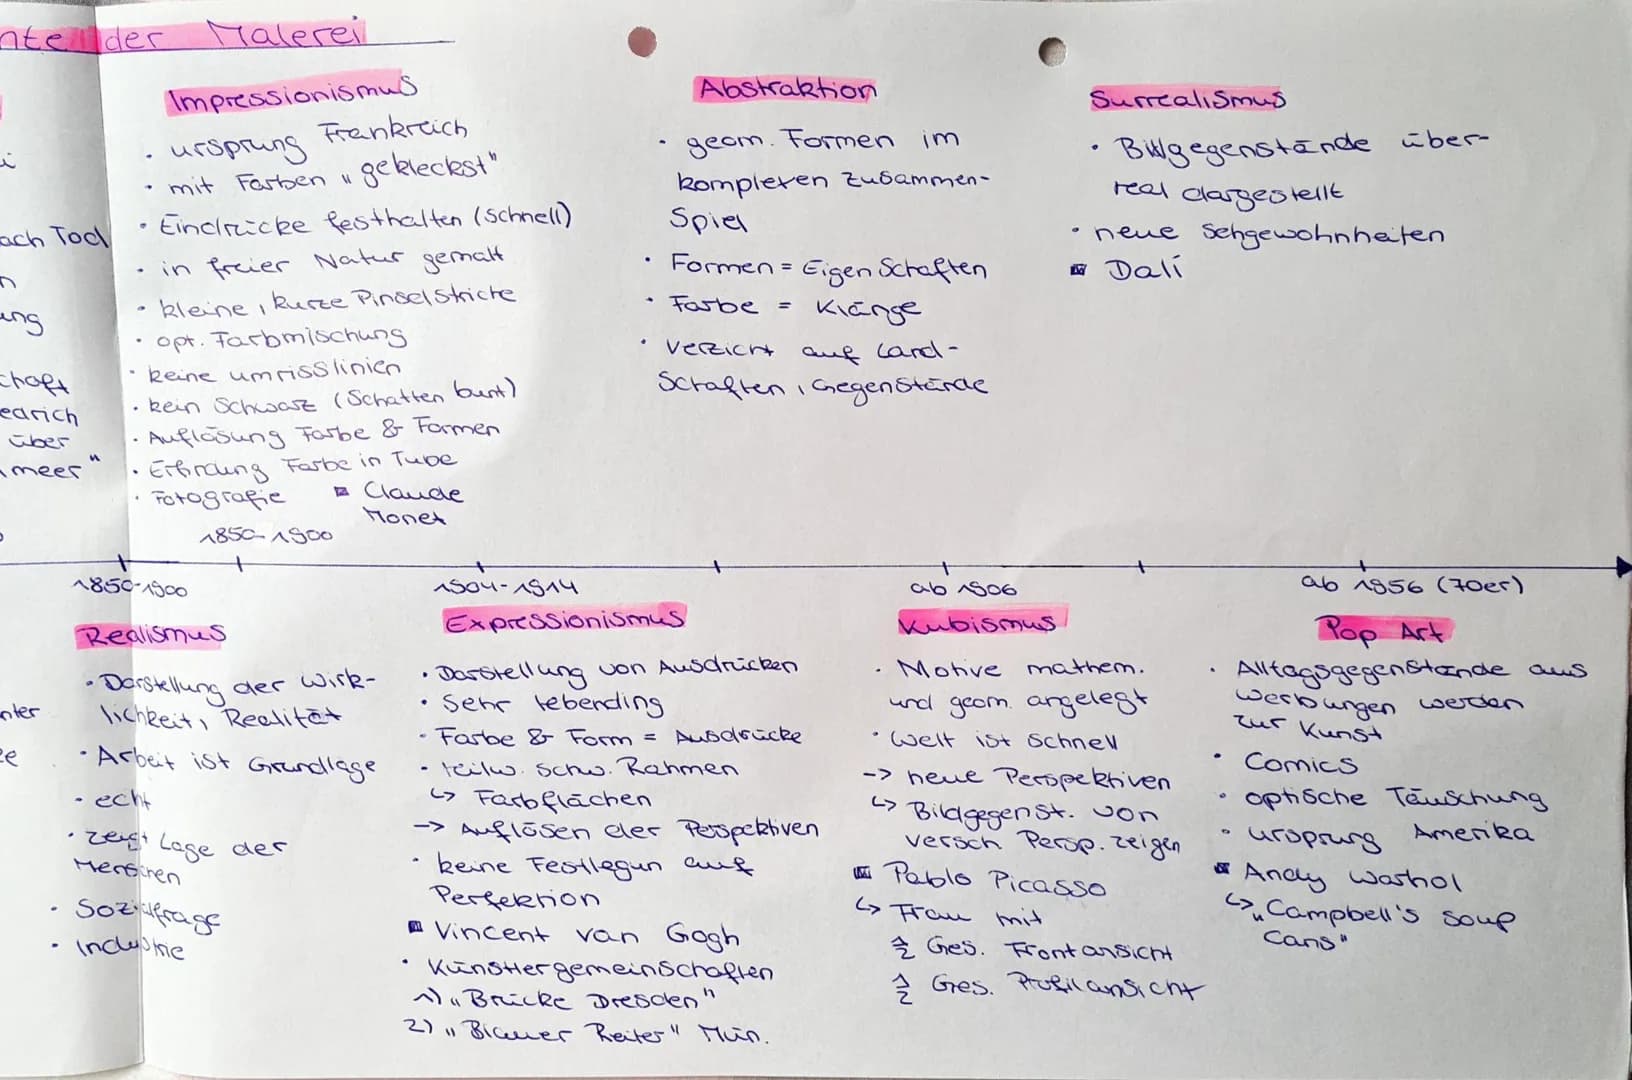 der Malerei
ach Tod
chaft
edrich
über
meer"
Impressionismus
· ursprung Frankreich
· mit Farben „gekleckst"
· Eindrücke festhalten (schnell)
· in freier Natur gemalt
· kleine, kurze Pinselstriche
· opt. Farbmischung
· keine umrisslinien
· kein Schwarz (Schatten bunt)
· Auflösung Farbe & Formen
· Erfindung Farbe in Tube
· Fotografie ▪ Claude
Monet
1850-1900
Abstraktion
· geom. Formen im
komplexen Zusammen-
Spiel
· Formen = Eigenschaften
· Farbe = Klänge
· Verzicht auf Land-
schaften, Gegenstände
Surrealismus
· Bildgegenstände über-
real dargestellt
· neue Sehgewohnheiten
▪ Dalí
1850-1900
Realismus
· Darstellung der Wirk-
lichkeit, Realität
· Arbeit ist Grundlage
· echt
· zeigt Lage der
Menschen
· Sozialfrage
· Industrie
1904-1914
Expressionismus
· Darstellung von Ausdrücken
· Sehr lebending
· Farbe & Form = Ausdrücke
· teilw. schw. Rahmen
↳ Farbflächen
-> Auflösen der Perspektiven
· keine Festlegun auf
Perfektion
▪ Vincent van Gogh
· Künstlergemeinschaften
1) „Brücke Dresden"
2) „Blauer Reiter" Mün.
ab 1906
Kubismus
· Motive mathem.
und geom. angelegt
· Welt ist schnell
-> neue Perspektiven
↳ Bildgegenst. von
versch Persp. zeigen
▪ Pablo Picasso
↳ Frau mit
½ Ges. Frontansicht
½ Ges. Profilansicht
ab 1956 (70er)
Pop Art
· Alltagsgegenstände aus
Werbungen werden
zur Kunst
· Comics
· optische Täuschung
· ursprung Amerika
▪ Andy Warhol
↳ „Campbell's Soup
Cans"